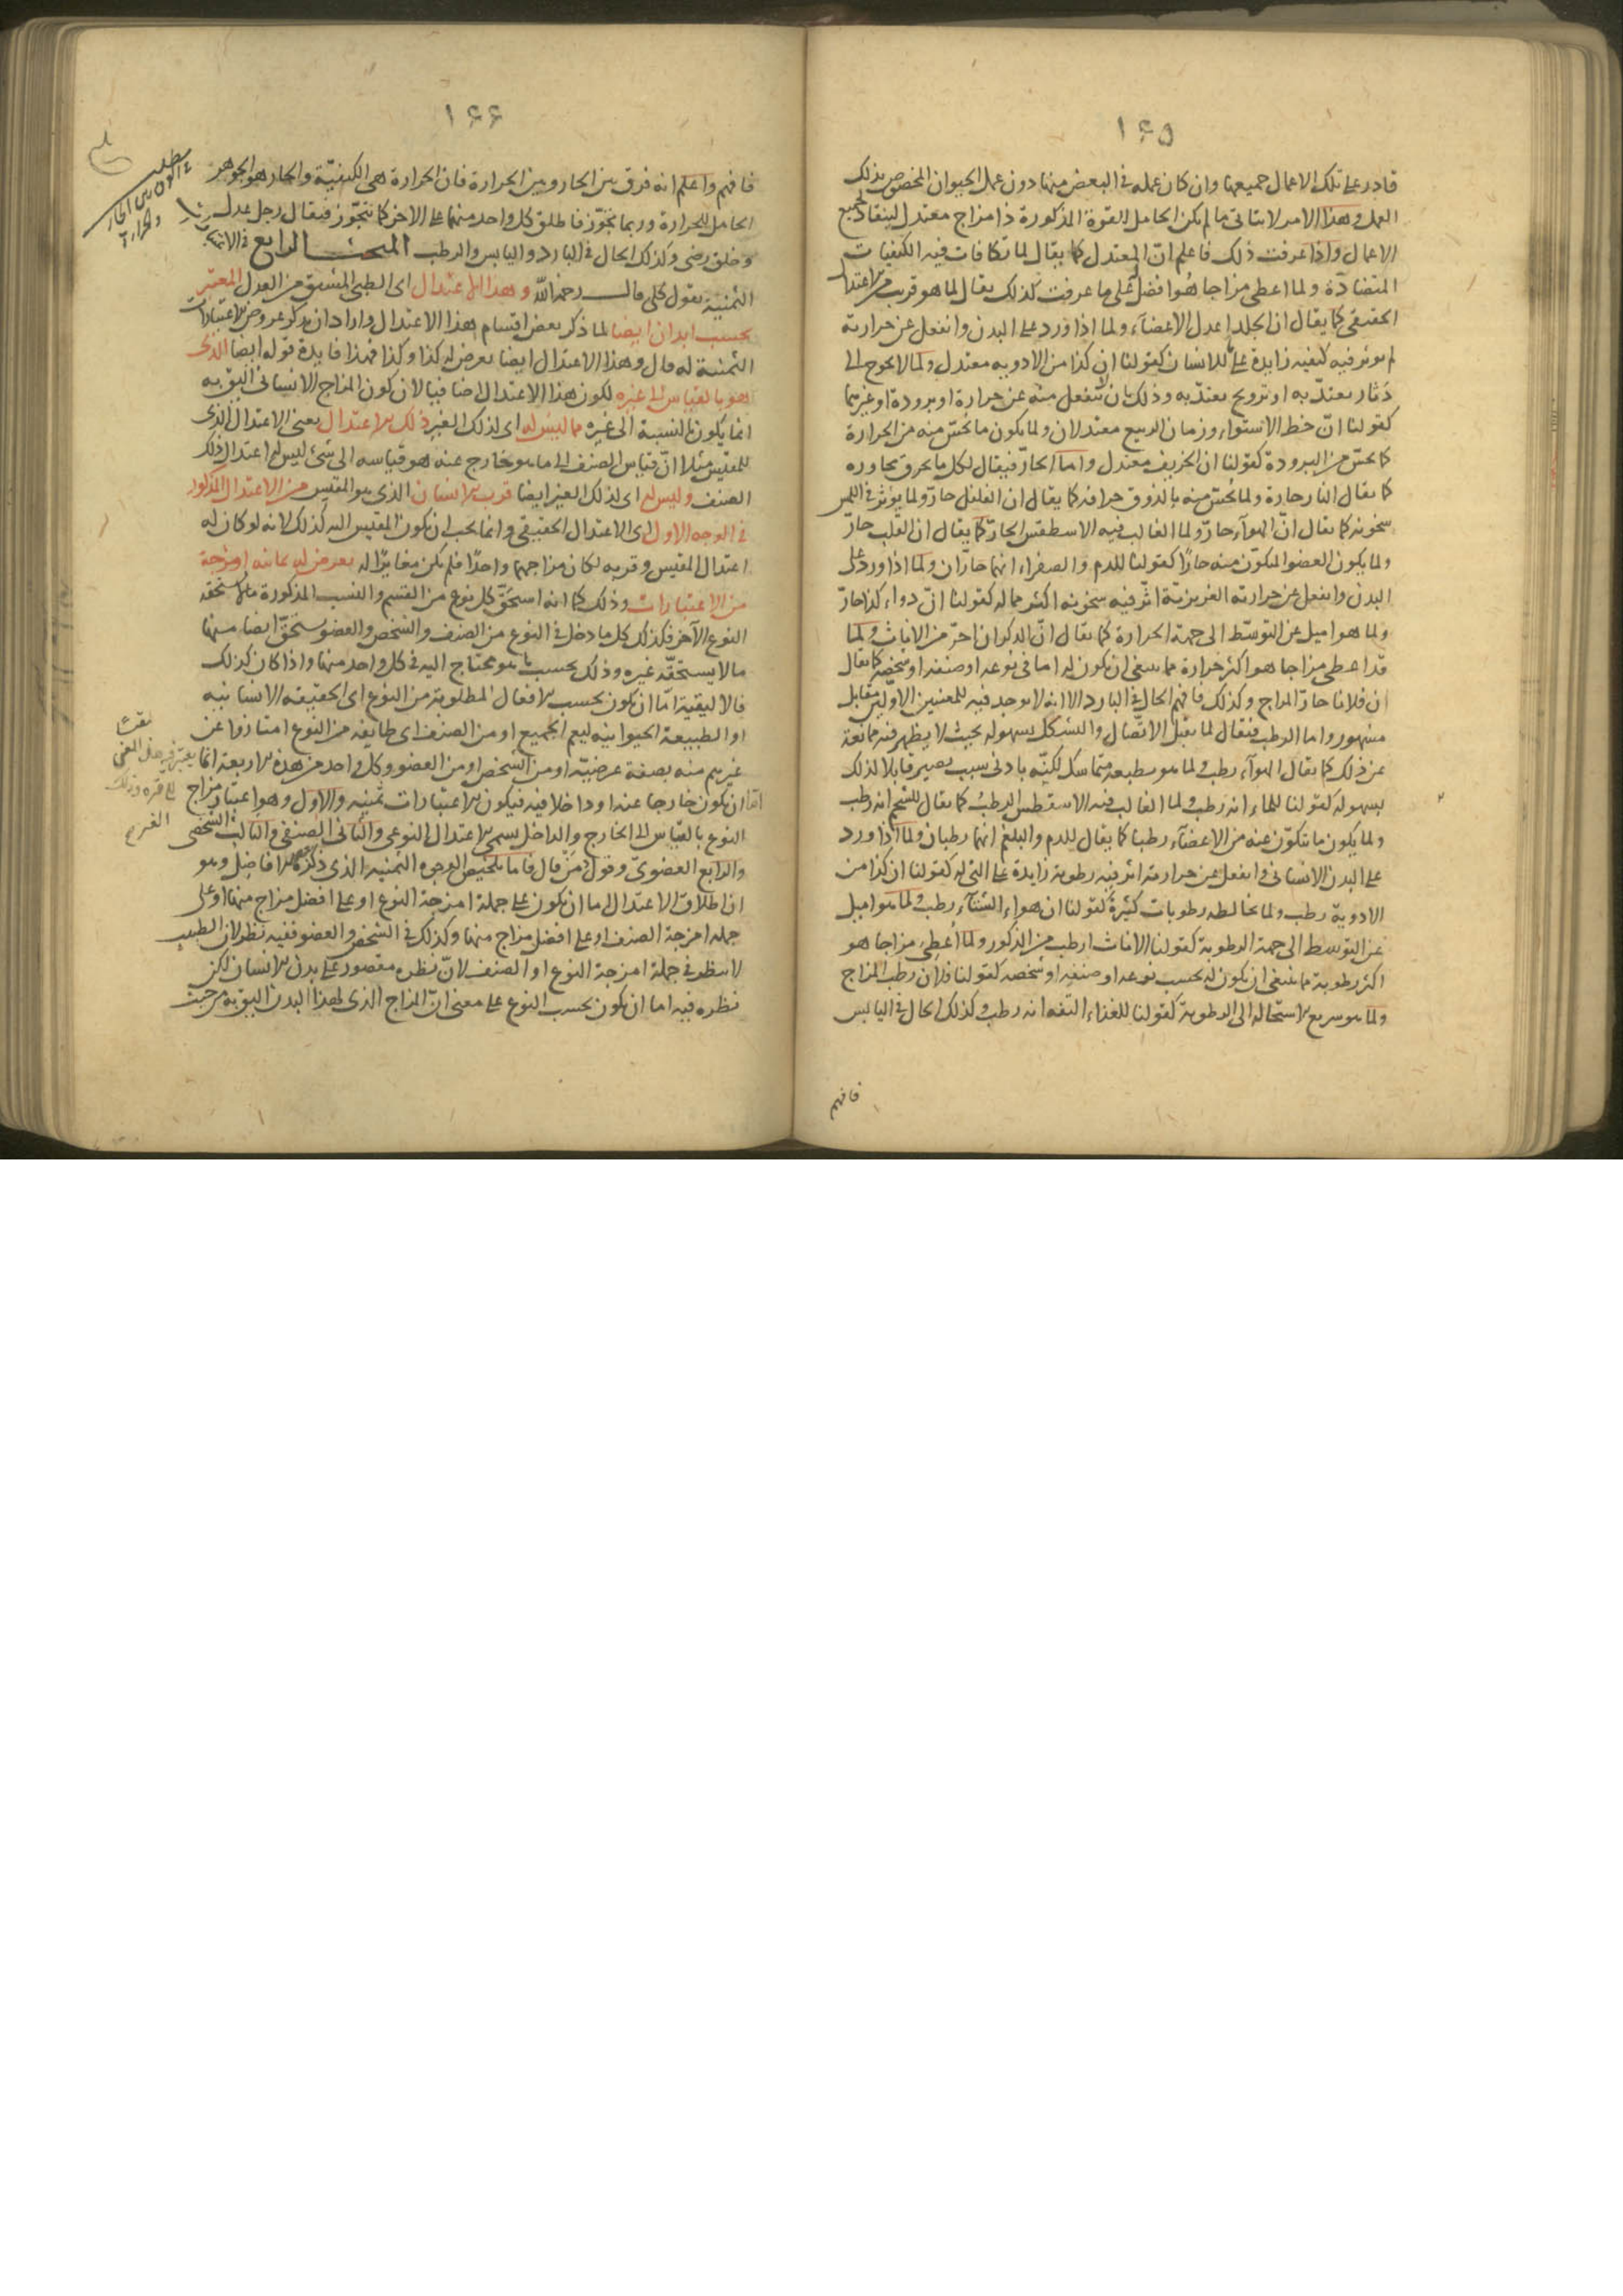 ١٦٥
قادر على تلك الاعمال جميعها وان كان عمله فى البعض منها دون عمل الحيوان المخصوص بذلك
العمل وهذا الامر لا يتاتى ما لم يكن الحامل للقوة المذكورة ذا مزاج معتدل لينقاد لجميع
الاعمال واذا عرفت ذلك فاعلم انّ المعتدل كما يقال لما تكافات فيه الكيفيات
المتضادّة ولما اعطى مزاجا هو افضل على ما عرفت كذلك يقال لما هو قريب من الاعتدال
الحقيقى كما يقال ان الجلد اعدل الاعضآء ولما اذا ورد على البدن وانفعل عن حرارته
لم يوثر فيه كيفيه زايدة على ما للانسان كقولنا ان كذا من الادويه معتدل ولما لا يحوج الى
دثار يعتدّ به او ترويح يعتدّ به وذلك بان لا ينفعل منه عن حرارة او برودة او غيرهما
كقولنا انّ خط الاستواء وزمان الربيع معتدلان ولما يكون ما يحسّ منه من الحرارة
كما يحسّ من البرودة كقولنا ان الخريف معتدل واما الحارّ فيقال لكل ما يحرق مجاوره
كما يقال النار حارة ولما يحسّ منه بالذوق حرافه كما يقال ان الفلفل حارّ ولما يؤثر فى اللمس
سخونه كما يقال انّ الهوآء حارّ ولما الغالب فيه الاسطقس الحارّ كما يقال ان القلب حارّ
ولما يكون العضو المتكوّن منه حارّا كقولنا للدم والصفراء انهما حارّان ولما اذا ورد على
البدن وانفعل عن حرارته الغريزيّة اثّر فيه سخونه اكثر مما له كقولنا انّ دواء كذا حارّ
ولما هو اميل عن التوسّط الى جهة الحرارة كما يقال انّ الذكوران احرّ من الاناث ولما
قد اعطى مزاجا هو اكثر حرارة مما ينبغى ان يكون له اما فى نوعه او صنفه او شخصه كما يقال
ان فلانا حارّ المزاج وكذلك فافهم الحال فى البارد الا انه لا يوجد فيه للمعنيين الاوّلين مقابل
مشهور واما الرطب فيقال لما يقبل الاتّصال والتشكل بسهوله بحيث لا يظهر فيه ممانعة
عن ذلك كما يقال الهوآء رطب ولما هو بطبعه متماسك لكنّه بادنى سبب يصير قابلا لذلك
بسهوله كقولنا للماء انه رطب ولما الغالب فيه الاسقطس الرطب كما يقال للشحم انه رطب
ولما يكون ما يتكوّن عنه من الاعضآء رطبا كما يقال للدم والبلغم انهما رطبان ولما اذا ورد
على البدن الانسانى وانفعل عن حرارته اثر فيه رطوبة زايدة على التى له كقولنا ان كذا من
الادوية رطب ولما يخالطه رطوبات كثيرة كقولنا ان هواء الشتآء رطب ولما هو اميل
عن التوسط الى جهة الرطوبة كقولنا الاناث ارطب من الذكور ولما اُعطى مزاجا هو
اكثر رطوبة مما ينبغى ان يكون له بحسب نوعه او صنفه او شخصه كقولنا فلان رطب المزاج
ولما هو سريع الاستحاله الى الرطوبة كقولنا للغذاء التفه انه رطب وكذلك الحال فى اليابس
فافهم
١٦٦
فافهم واعلم انه فرق بين الحار وبين الحرارة فان الحرارة هى الكيفيّة والحار هو الجوهر
الحامل للحرارة وربما تجوّز فاطلق كل واحد منهما على الاخر كما يتجوّز فيقال رجل عدل
وخلق رضى وكذلك الحال فى البارد واليابس والرطب المبحث الرابع
الثمنية بقول كلى قال رحمه الله وهذا الاعتدال اى الطبى المشتق من العدل المعتبر
بحسب ابدان ايضا لما ذكر بعض اقسام هذا الاعتدال واراد ان يذكر عروض الاعتبارات
الثمنية له قال وهذا الاعتدال ايضا يعرض له كذا وكذا فهذا فايدة قوله ايضا الذى
هو بالقياس الى غيره لكون هذا الاعتدال اضافيا لان كون المزاج الانسانى اليق به
انما يكون بالنسبة الى غيره مما ليس له اى لذلك الغير ذلك الاعتدال يعنى الاعتدال الذى
للمقيس مثلا انّ قياس الصنف الى ما هو خارج عنه هو قياسه الى شئ ليس له اعتدال ذلك
الصنف وليس له اى لذلك الغير ايضا قرب الانسان الذى هو المقيس من الاعتدال المذكور
فى الوجه الاول اى الاعتدال الحقيقى وانما يجب ان يكون المقيس اليه كذلك لانه لو كان له
اعتدال المقيس وقربه لكان مزاجهما واحدا فلم يكن مغايرا له يعرض له ثمانيه اوجه
من الاعتبارات وذلك كما انه استحقّ كل نوع من القسم والنسب المذكورة ما لا يستحقه
النوع الآخر فكذلك كل ما دخل فى النوع من الصنف والشخص والعضو يستحقّ ايضا منهما
ما لا يستحقّه غيره وذلك بحسب ما هو محتاج اليه فى كل واحد منهما واذا كان كذلك
فالاليقية امّا ان يكون بحسب الافعال المطلوبة من النوع اى الحقيقه الانسانيه
او الطبيعة الحيوانيه ليعم الجميع او من الصنف اى طايفه من النوع امتازوا عن
غيرهم منه بصفة عرضيّه او من الشخص او من العضو وكل واحد من هذه الاربعة
امّا ان يكون خارجا عنه او داخلا فيه فيكون الاعتبارات ثمنيه والاول وهو اعتبار مزاج
النوع بالقياس الى الخارج والداخل يسمى الاعتدال النوعى والثانى الصنفى والثالث الشخصى
والرابع العضوىّ وقول من قال فاما تلخيص الوجوه الثمنيه الذى ذكره بعض الافاضل وهو
ان اطلاق الاعتدال اما ان يكون على جملة امزجة النوع او على افضل مزاج منها او على
جمله امزجة الصنف او على افضل مزاج منها وكذلك فى الشخص والعضو ففيه نظر لان الطبيب
لا ينظر فى جملة امزجة النوع او الصنف لانّ نظره مقصور على بدن الانسان لكن
نظره فيه اما ان يكون بحسب النوع على معنى انّ المزاج الذى لهذا البدن اليق به من حيث